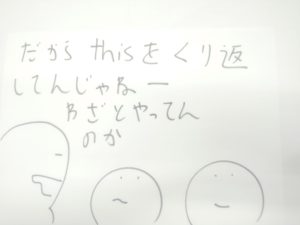 だから thisをくり返
してんじゃねー
わざとやってん
のか